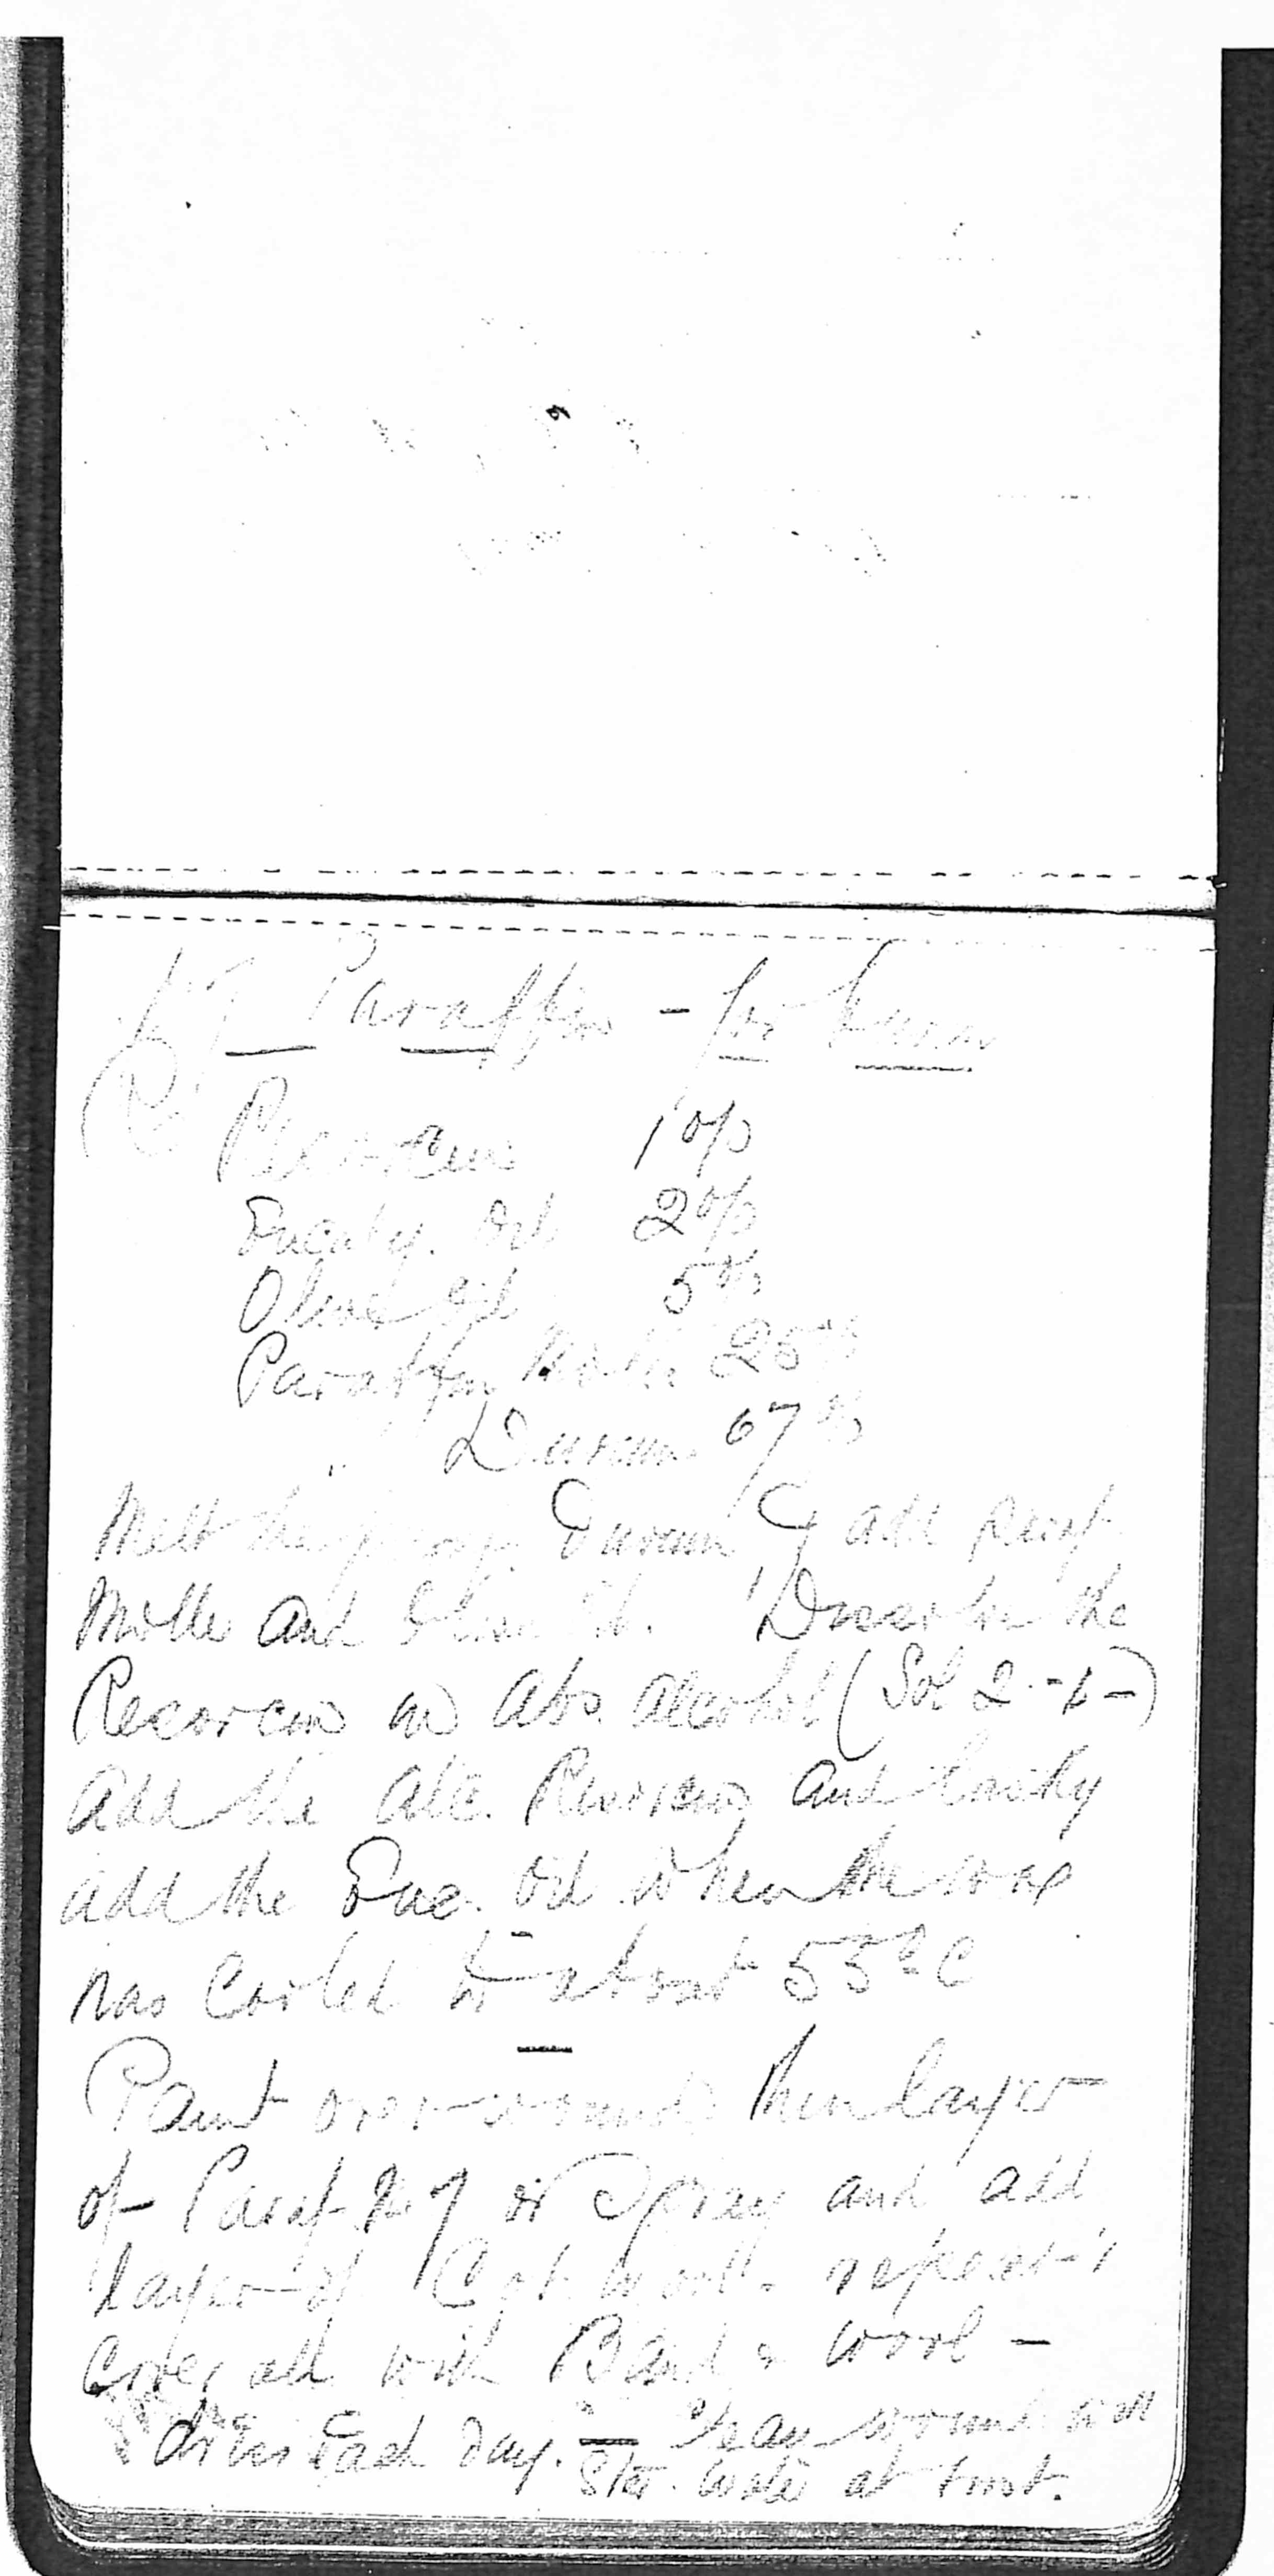 No 7 Paraffin - for burns
Resorcin 1 %
Eucaly. Oil 2 %
Olive Oil 5 %
Paraffin Molle 25 %
" Durum 67 %
Melt the Durum & add Paraf
Molle and Olive Oil. Dissolve the
Resorcin in Abs. alcohol (Sol 2 - 1 -)
Add the alc. Resorcin and lastly
add the Euc. Oil when the wax
has cooled to about 55° C
Paint over wound thin layer
of Paraf. No 7 or Spray and add
layer of Cot. wool. repeat
Cover all with Band & wool -
dress Each Day. — Clean wound with
Ster. water at first.